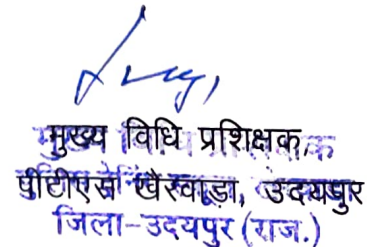 मुख्य विधि प्रशिक्षक,
पीटीएस खैरवाड़ा, उदयपुर
जिला-उदयपुर (राज.)